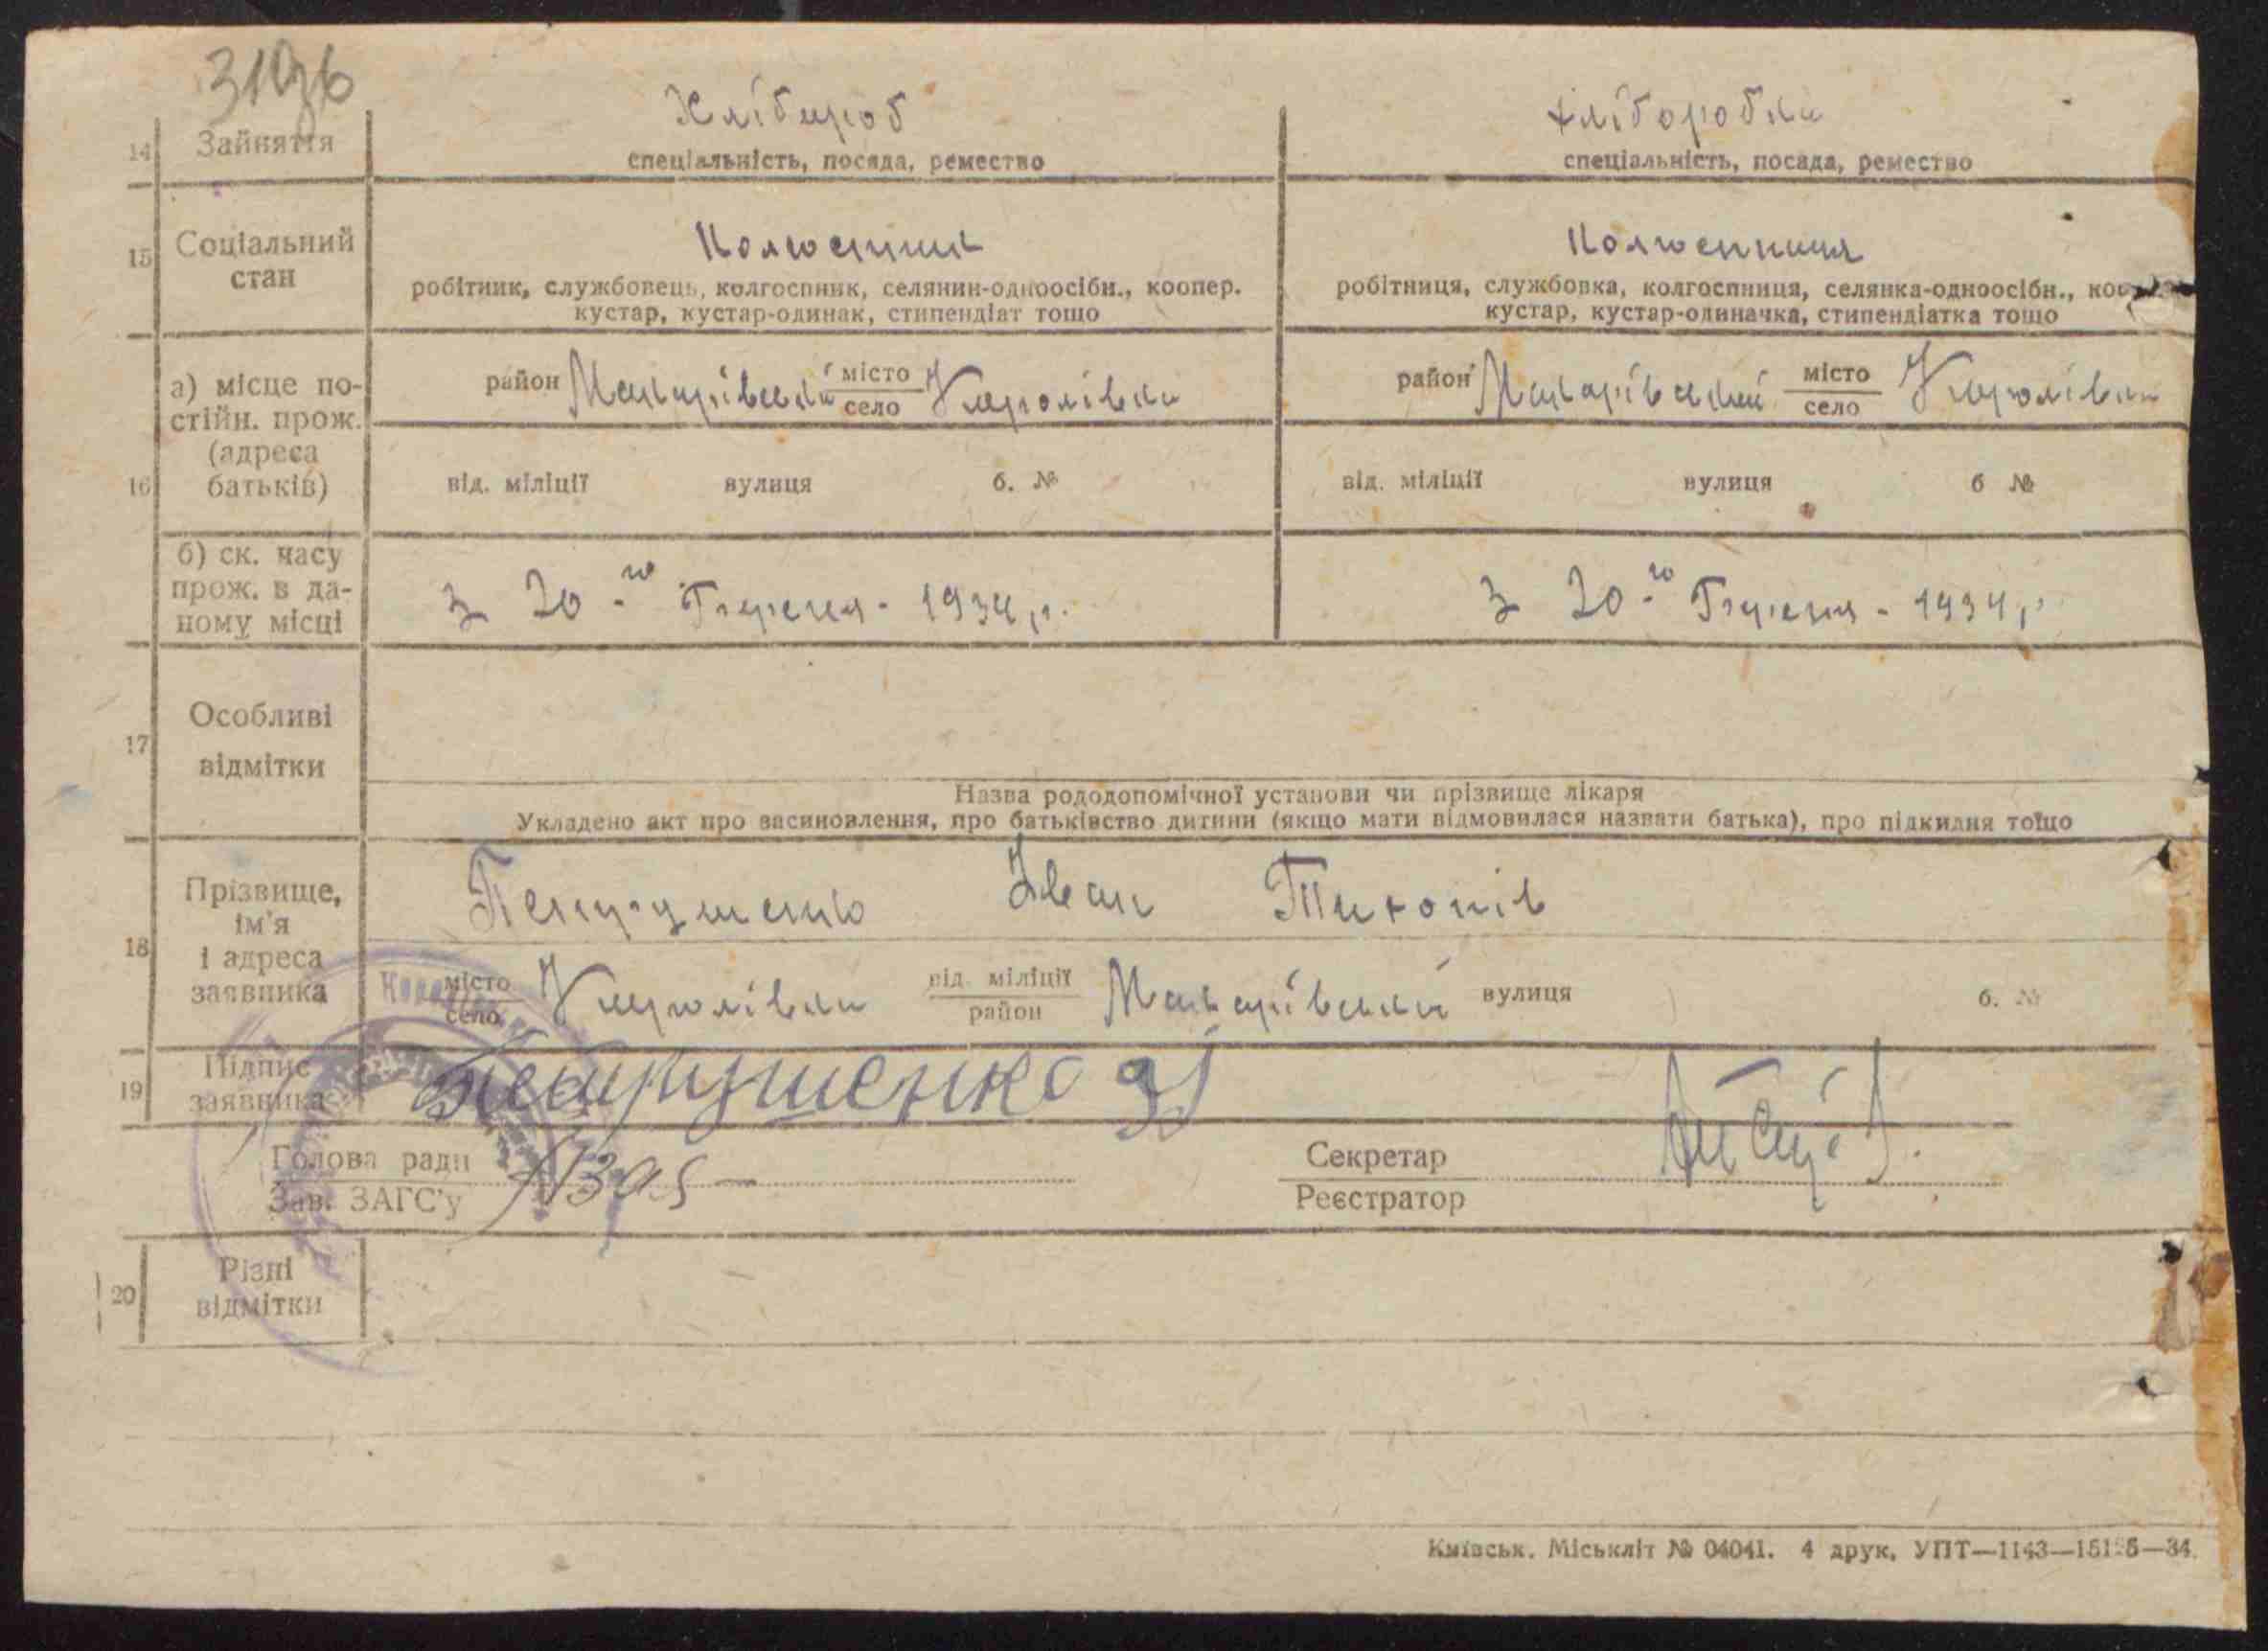 310зв
14 Зайняття
Хлібороб
спеціальність, посада, ремество
хліборобка
спеціальність, посада, ремество
15 Соціальний стан
Колгоспник
робітник, службовець, колгоспник, селянин-одноосібн., коопер.
кустар, кустар-одинак, стипендіат тощо
Колгоспниця
робітниця, службовка, колгоспниця, селянка-одноосібн.,
кустар, кустар-одиначка, стипендіатка тощо
16 а) місце по-
стійн. прож.
(адреса
батьків)
район Макарівський місто село Королівка
район Макарівський місто село Королівка
від. міліції вулиця б. №
від. міліції вулиця б №
б) ск. часу
прож. в да-
ному місці
з 20-го 1934 р.
з 20-го 1934 р
17 Особливі
відмітки
Назва рододопомічної установи чи прізвище лікаря
Укладено акт про засиновлення, про батьківство дитини (якщо мати відмовилася назвати батька), про підкидня тощо
18 Прізвище,
ім'я
і адреса
заявника
Петрушенко Іван Тихонів
місто село Королівка від. міліції район Макарівський вулиця б. №
19 Підпис
заявника
Петрушенко
Голова ради
Зав. ЗАГС'у
Секретар
Реєстратор
20 Різні
відмітки
Київськ. Міськліт № 04041. 4 друк. УПТ—1143—